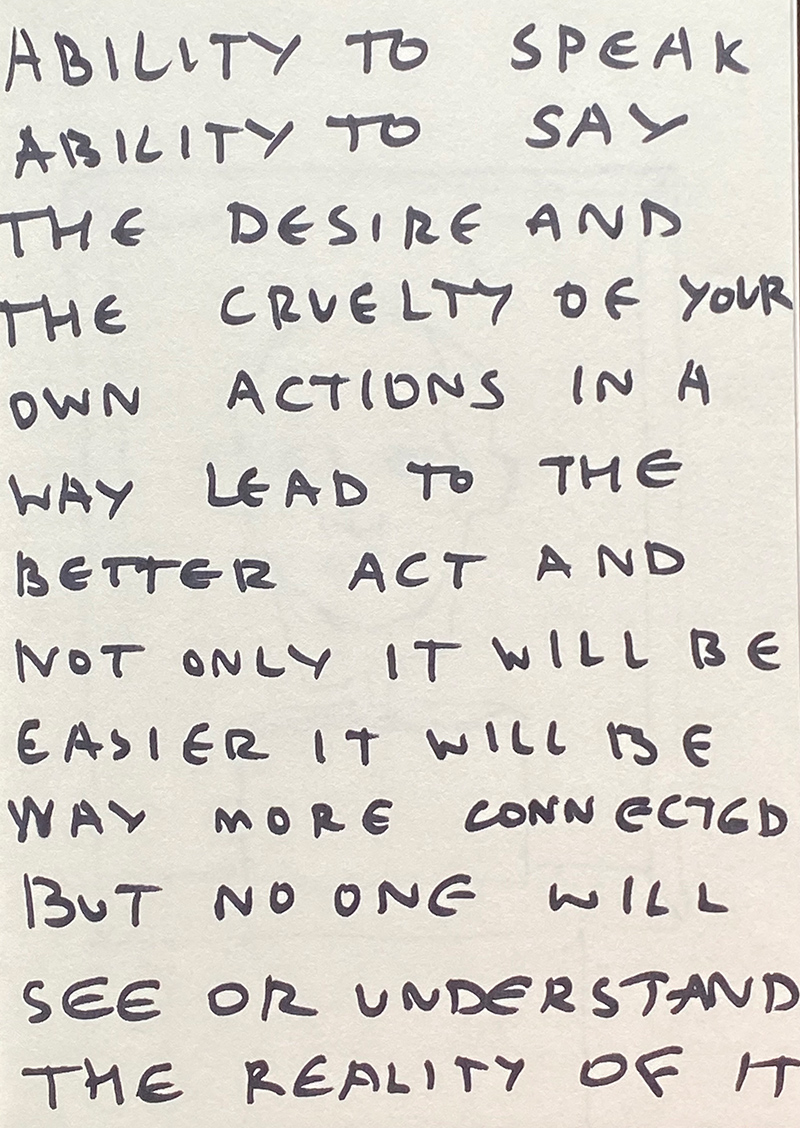 ABILITY TO SPEAK
ABILITY TO SAY
THE DESIRE AND
THE CRUELTY OF YOUR
OWN ACTIONS IN A
WAY LEAD TO THE
BETTER ACT AND
NOT ONLY IT WILL BE
EASIER IT WILL BE
WAY MORE CONNECTED
BUT NO ONE WILL
SEE OR UNDERSTAND
THE REALITY OF IT